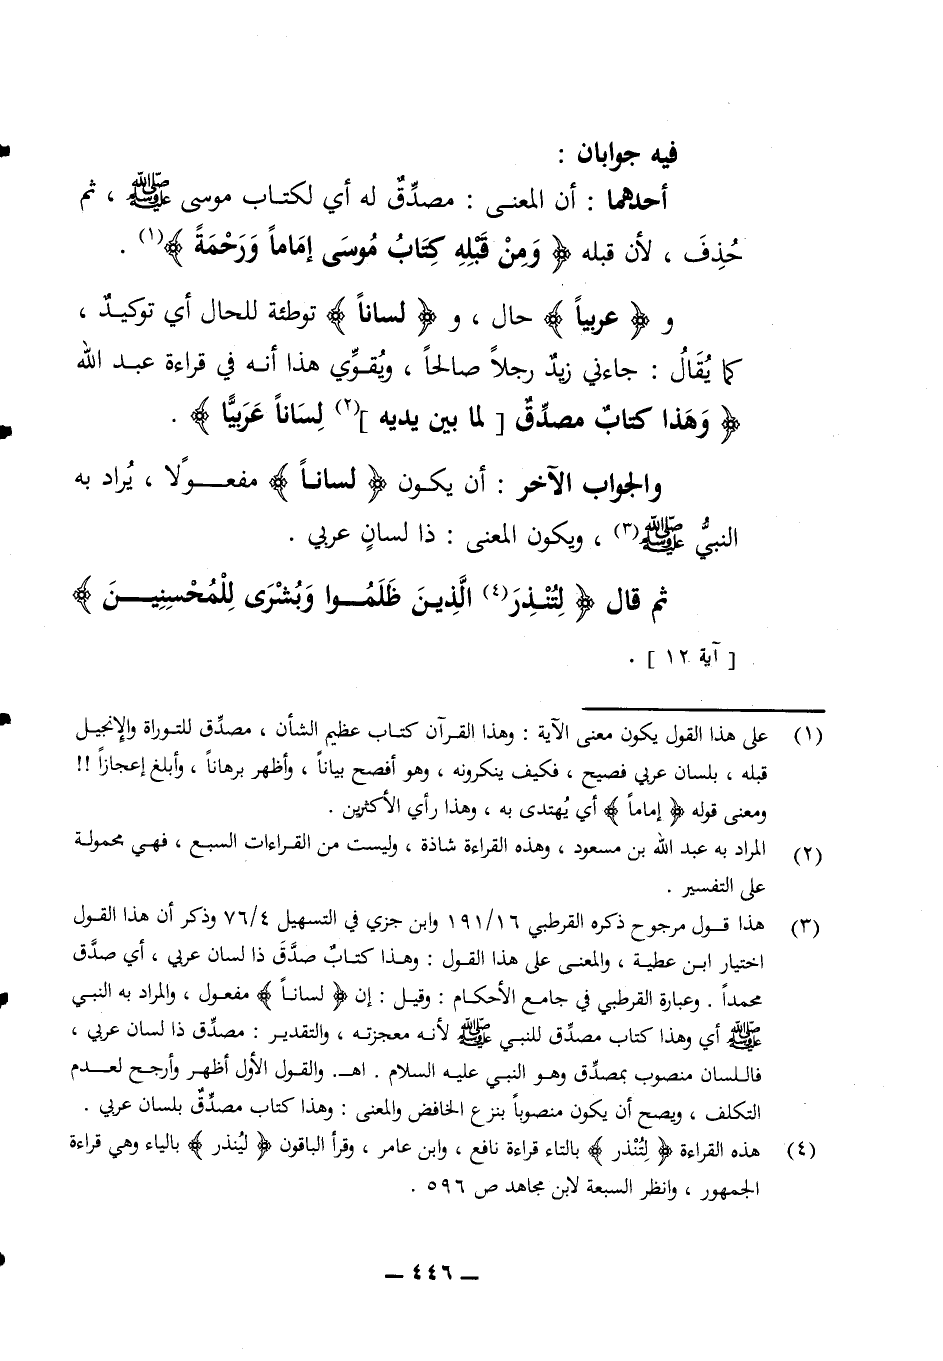 فيه جوابان :
أحدهما : أن المعنـى : مصدِّقٌ له أي لكتـاب موسى ﷺ ، ثم
حُذِفَ ، لأن قبله ﴿ وَمِنْ قَبْلِهِ كِتَابُ مُوسَى إمَاماً وَرَحْمَةً ﴾(١) .
و ﴿ عربياً ﴾ حال ، و ﴿ لساناً ﴾ توطئة للحال أي توكيدٌ ،
كما يُقَالُ : جاءني زيدٌ رجلاً صالحاً ، ويُقوِّي هذا أنـه في قراءة عبد الله
﴿ وَهَذا كتابٌ مصدِّقٌ [ لما بين يديه ](٢) لِسَاناً عَرَبيًّا ﴾ .
والجواب الآخر : أن يكـون ﴿ لسانـاً ﴾ مفعـــولًا ، يُراد به
النبيُّ ﷺ(٣) ، ويكون المعنى : ذا لسانٍ عربي .
ثم قال ﴿ لِتُنْـذِرَ(٤) الَّذِيـنَ ظَلَمُـــوا وَبُشْرَى لِلْمُحْسِنِيـــنَ ﴾
[ آية ١٢ ] .
(١) على هذا القول يكون معنى الآية : وهذا القـرآن كتـاب عظيم الشأن ، مصدِّق للتـوراة والإنجيـل
قبله ، بلسان عربي فصيح ، فكيف ينكرونه ، وهو أفصح بياناً ، وأظهر برهاناً ، وأبلغ إعجازاً !!
ومعنى قوله ﴿ إماماً ﴾ أي يُهتدى به ، وهذا رأي الأكثرين .
(٢) المراد به عبد الله بن مسعود ، وهذه القراءة شاذة ، وليست من القـراءات السبع ، فهي محمولـة
على التفسير .
(٣) هذا قـول مرجوح ذكره القرطبي ١٩١/١٦ وابن جزي في التسهيل ٧٦/٤ وذكر أن هذا القول
اختيار ابـن عطيـة ، والمعنـى على هذا القـول : وهـذا كتـابٌ صدَّقَ ذا لسان عربي ، أي صدَّق
محمداً . وعبارة القرطبي في جامع الأحكام : وقيـل : إن ﴿ لسانـاً ﴾ مفعـول ، والمراد به النبي
ﷺ أي وهذا كتاب مصدِّق للنبـي ﷺ لأنـه معجزتـه ، والتقديـر : مصدِّق ذا لسان عربي ،
فاللسان منصوب بمصدِّق وهـو النبي عليـه السلام . اهـ. والقول الأول أظهـر وأرجـح لعــدم
التكلف ، ويصح أن يكون منصوباً بنزع الخافض والمعنى : وهذا كتاب مصدِّقٌ بلسان عربي .
(٤) هذه القراءة ﴿ لِتُنْذر ﴾ بالتاء قراءة نافع ، وابن عامر ، وقرأ الباقون ﴿ ليُنذر ﴾ بالياء وهي قراءة
الجمهور ، وانظر السبعة لابن مجاهد ص ٥٩٦ .
ـ ٤٤٦ ـ